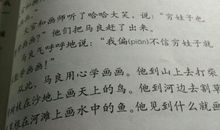 大官和画师听了哈哈大笑，说："穷娃子也
画画？"他们把马良赶了出来。
马良气呼呼地说："我偏(piān)不信穷娃子就
学画画！"
从此，马良用心学画画。他到山上去打柴，
在沙地上画天上的鸟。他到河边去割草
在河滩上画水中的鱼。他见到什么就画